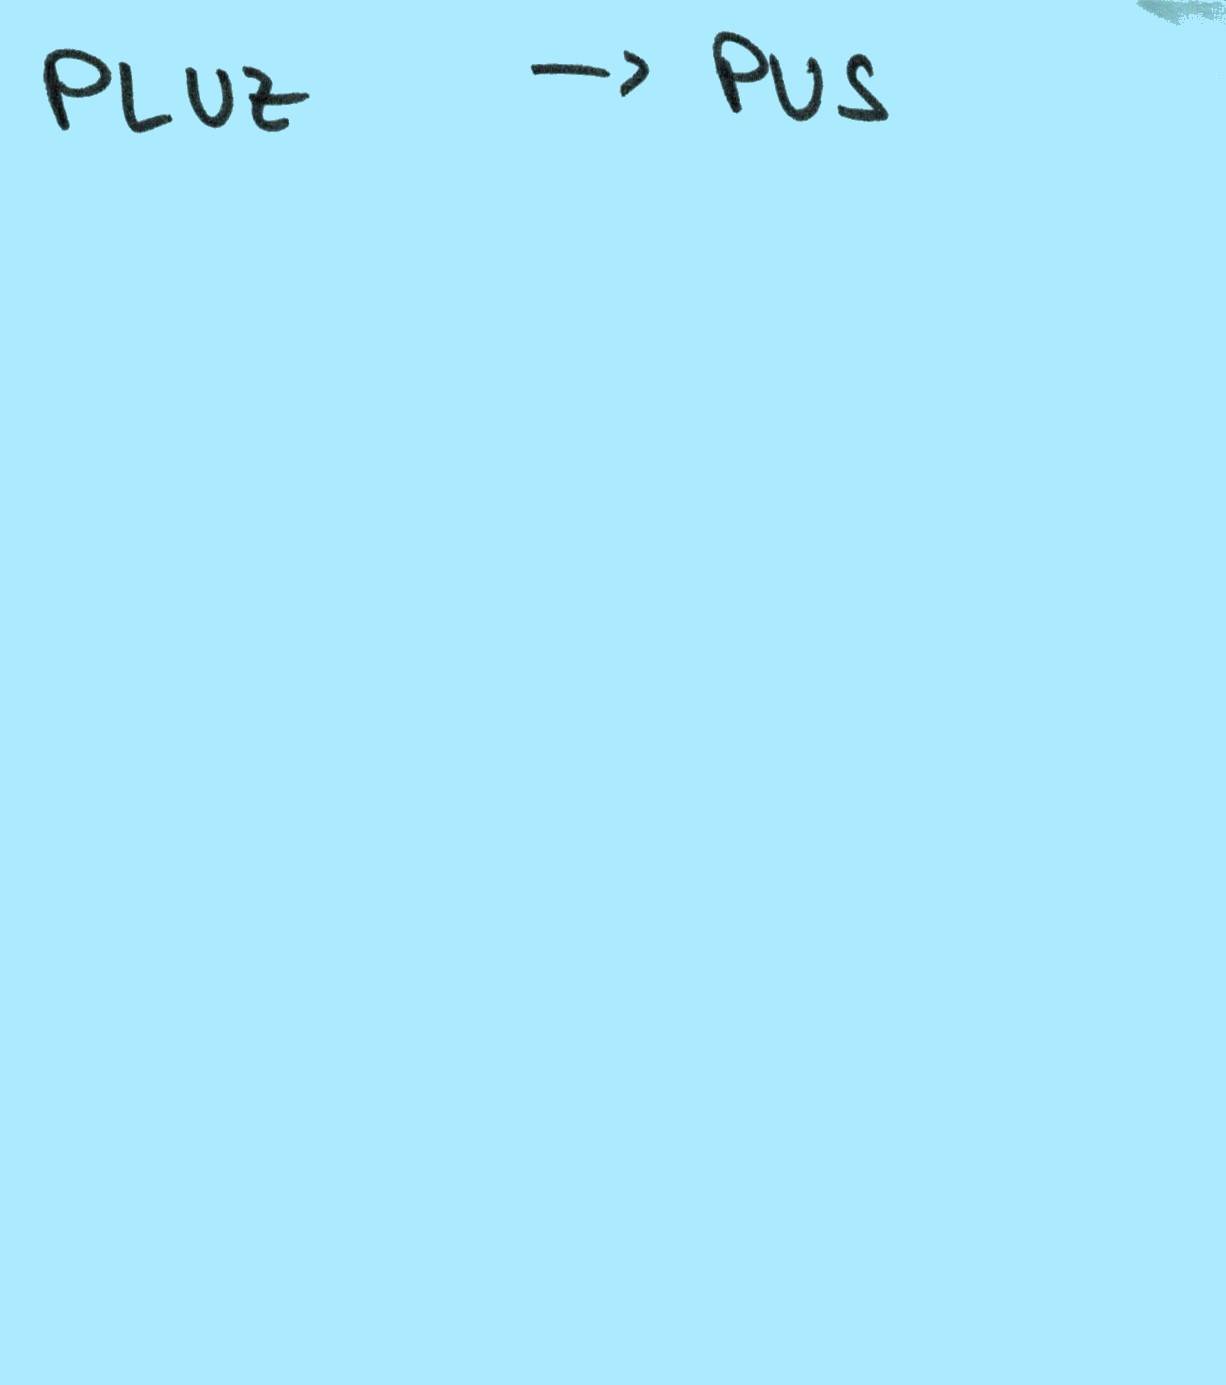 PLUZ -> PUS